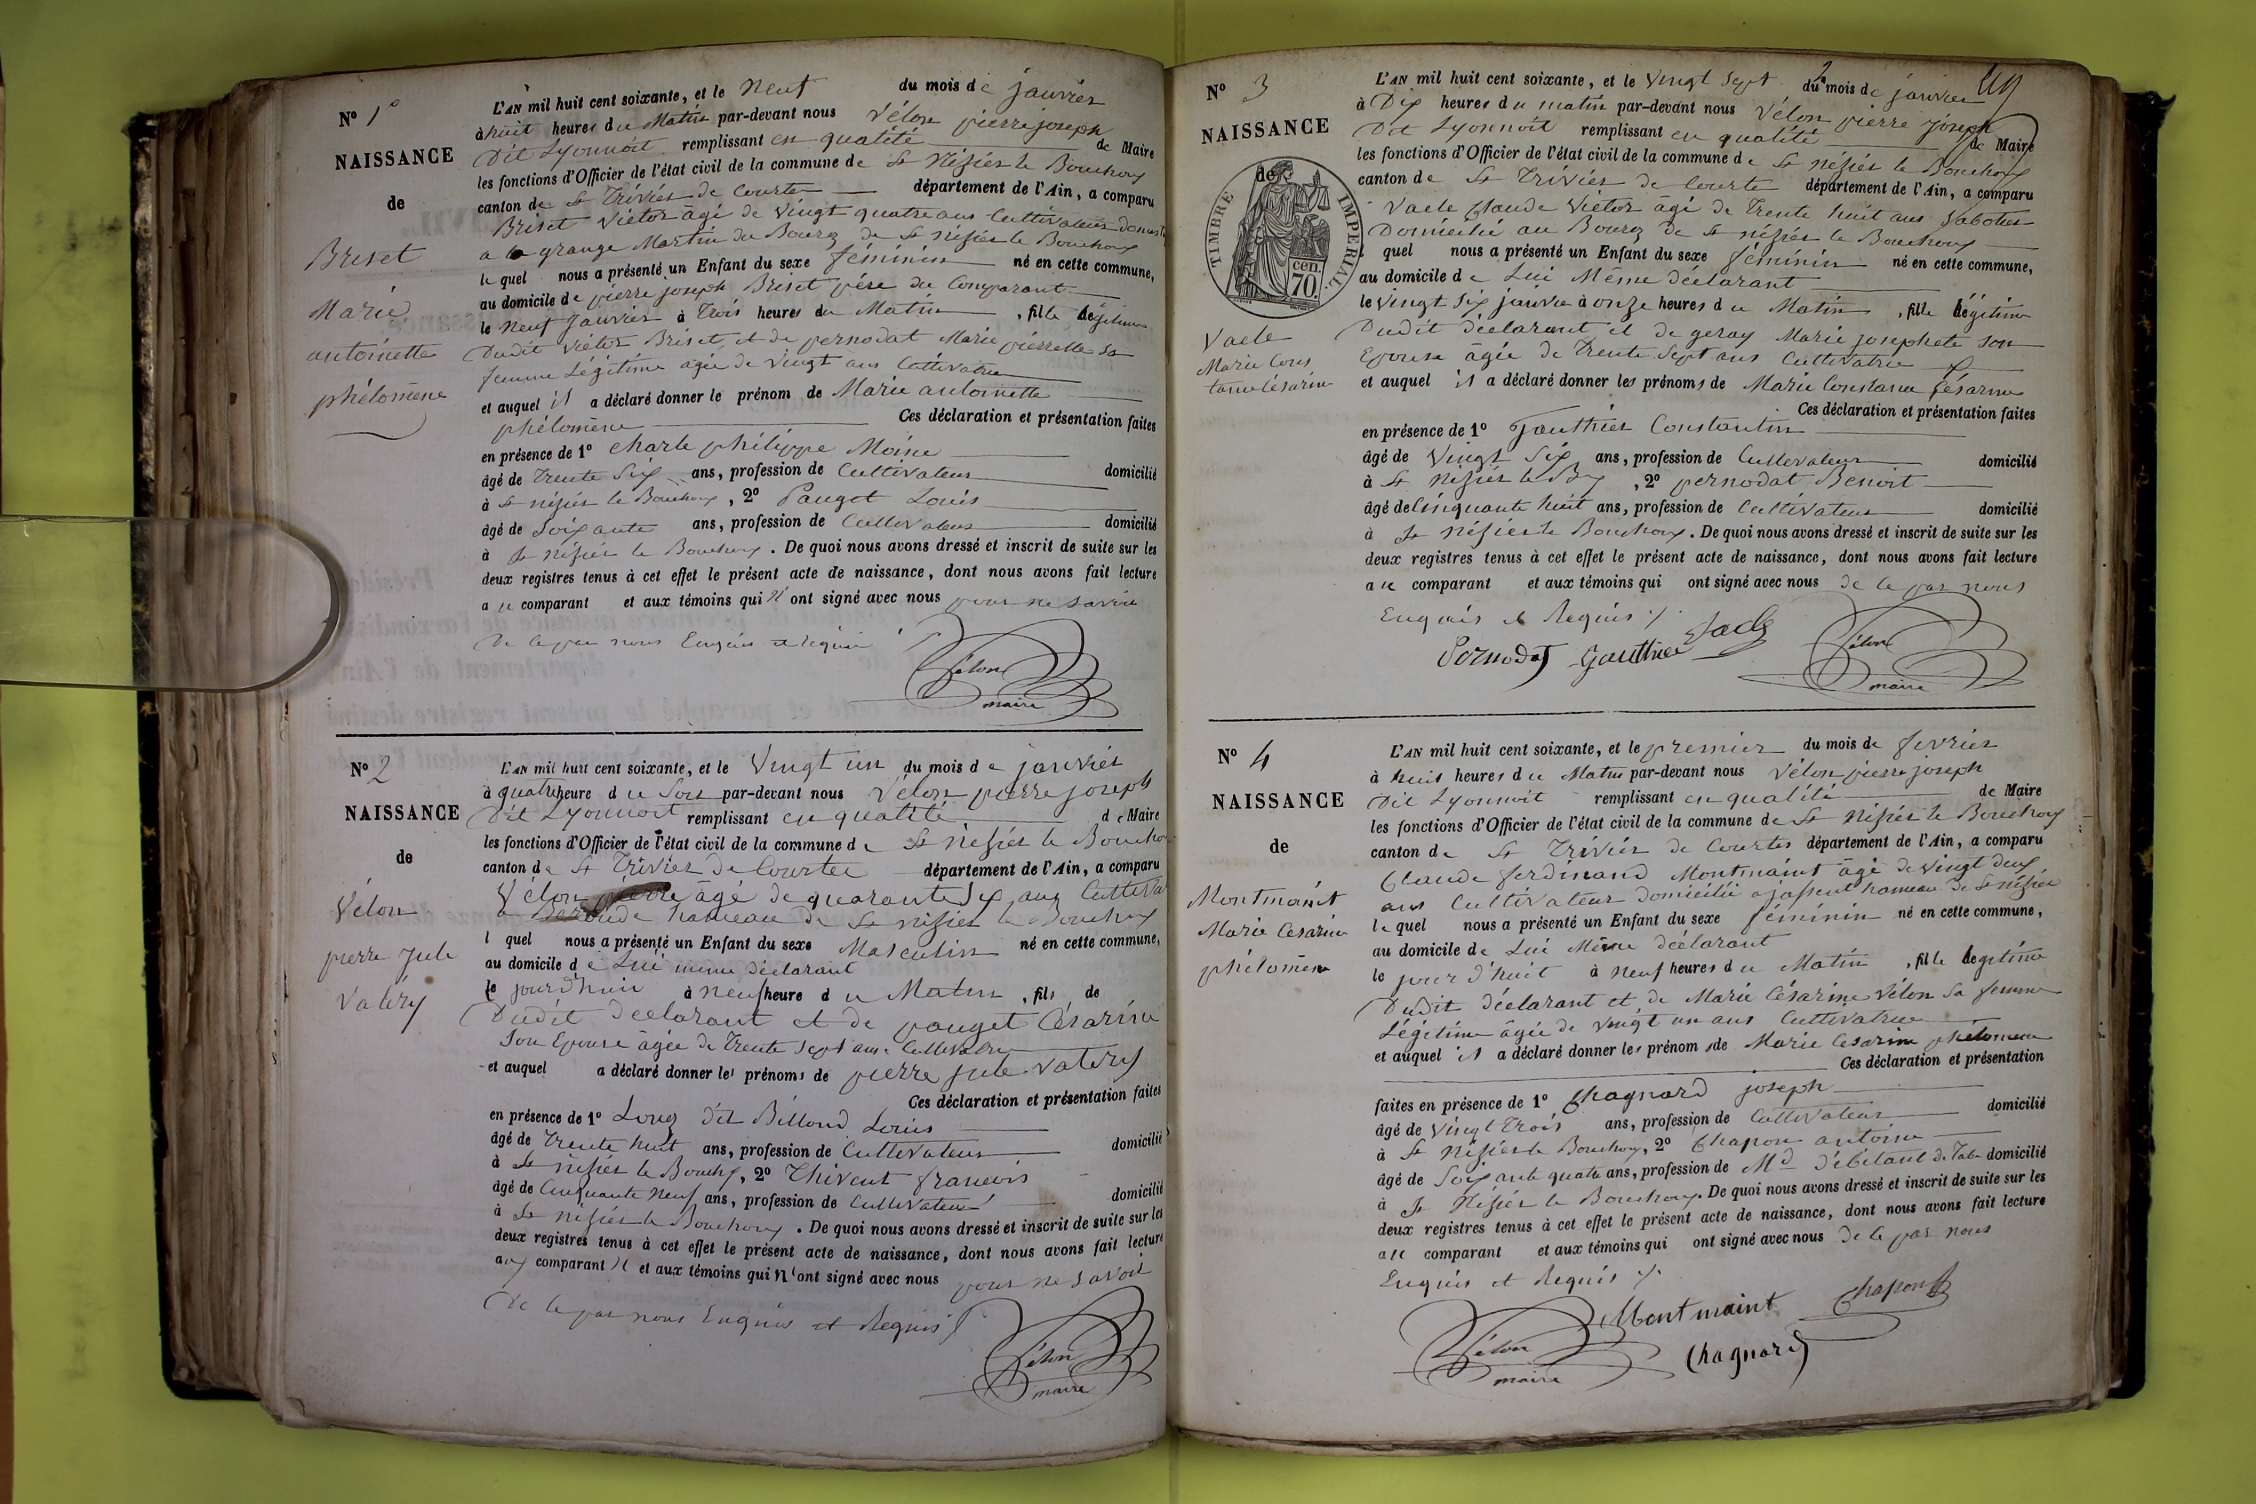 N° 1
NAISSANCE
de
Briset
Marie
antoinette
phélomène
L'AN mil huit cent soixante, et le neuf du mois de janvier
à huit heures du Matin par-devant nous Vélon pierre joseph
Dit Lyonnoit remplissant en qualité de Maire
les fonctions d'Officier de l'état civil de la commune de St Nisiér le Bouchoux
canton de St Triviér de Courte département de l'Ain, a comparu
Briset Victor âgé de Vingt quatre ans Cultivateur
a la grange Martin du Bourg de St Nisiér le Bouchoux
lequel nous a présenté un Enfant du sexe féminin né en cette commune,
au domicile de pierre joseph Briset père du Comparant
le Neuf Janvier à Trois heures du Matin, fille légitime
Dudit Victor Briset, et de pernodat Marie pierrette sa
femme Légitime agée de Vingt ans Cultivatrice
et auquel il a déclaré donner le prénom de Marie antoinette
phélomène Ces déclaration et présentation faites
en présence de 1° Charle philippe Moine
âgé de Trente Six ans, profession de Cultivateur domicilié
à St nisiér le Bouchoux, 2° Pauget Louis
âgé de Soixante ans, profession de Cultivateur domicilié
à St Nisiér le Bouchoux. De quoi nous avons dressé et inscrit de suite sur les
deux registres tenus à cet effet le présent acte de naissance, dont nous avons fait lecture
au comparant et aux témoins qui n'ont signé avec nous pour ne savoir
De ce par nous Enquis et requis
Vélon
maire
N° 2
NAISSANCE
de
Vélon
pierre Jule
Valéry
L'AN mil huit cent soixante, et le Vingt un du mois de janvier
à quatre heure du Soir par-devant nous Vélon pierre joseph
Dit Lyonnoit remplissant en qualité de Maire
les fonctions d'Officier de l'état civil de la commune de St Nisiér le Bouchoux
canton de St Triviér de Courtee département de l'Ain, a comparu
Vélon pierre âgé de quarante Six ans Cultiva
a hameau de St nisier le Bouchoux
l quel nous a présenté un Enfant du sexe Masculin né en cette commune,
au domicile de Lui même déclarant
le jourd'huit à neuf heure du Matin, fils de
Dudit déclarant et de pauget Césarine
son Epouse âgée de Trente Sept ans Cultivatrice
et auquel a déclaré donner les prénoms de pierre jule Valéry
Ces déclaration et présentation faites
en présence de 1° Long dit Billond Louis
âgé de Trente huit ans, profession de Cultivateur domicilié
à St nisiér le Bouchx, 2° Thivent francois
âgé de Cinquante Neuf ans, profession de Cultivateur domicilié
à St nisiér le Bouchoux. De quoi nous avons dressé et inscrit de suite sur les
deux registres tenus à cet effet le présent acte de naissance, dont nous avons fait lecture
aux comparant et aux témoins qui n'ont signé avec nous pour ne savoir
De ce par nous Enquis et Requis
Vélon
maire
2
N° 3
NAISSANCE
de
TIMBRE IMPERIAL.
70 cen.
Vacle
Marie Cons
tance Césarine
L'AN mil huit cent soixante, et le Vingt Sept du mois de janvier
à Dix heures du matin par-devant nous Vélon pierre joseph
Dit Lyonnoit remplissant en qualité de Maire
les fonctions d'Officier de l'état civil de la commune de St Nésiér le Bouchoux
canton de St Triviér de Courte département de l'Ain, a comparu
Vacle Claude Victor âgé de Trente huit ans Sabotier
Domicilié au Bourg de St nésiér le Bouchoux
quel nous a présenté un Enfant du sexe féminin né en cette commune,
au domicile de Lui Même déclarant
le Vingt Six janvier à onze heures du Matin, fille légitime
Dudit déclarant et de geray Marie josephete son
Epouse âgée de Trente Sept ans Cultivatrice
et auquel il a déclaré donner les prénoms de Marie Constance Césarine
Ces déclaration et présentation faites
en présence de 1° Gauthier Constantin
âgé de Vingt Six ans, profession de Cultivateur domicilié
à St Nisiér le Bx, 2° pernodat Benoit
âgé de Cinquante huit ans, profession de Cultivateur domicilié
à St Nésiér le Bouchoux. De quoi nous avons dressé et inscrit de suite sur les
deux registres tenus à cet effet le présent acte de naissance, dont nous avons fait lecture
au comparant et aux témoins qui ont signé avec nous de ce par nous
Enquis et Requis
Pernodat Gauthier Vacle Vélon
maire
N° 4
NAISSANCE
de
Montmaint
Marie Césarine
phélomène
L'AN mil huit cent soixante, et le premier du mois de fevrier
à huit heures du Matin par-devant nous Vélon pierre joseph
Dit Lyonnoit remplissant en qualité de Maire
les fonctions d'Officier de l'état civil de la commune de St Nésiér le Bouchoux
canton de St Triviér de Courtes département de l'Ain, a comparu
Claude ferdinand Montmaint âgé de Vingt deux
ans Cultivateur domicilié a hameau de St nésiér
le quel nous a présenté un Enfant du sexe féminin né en cette commune,
au domicile de Lui Même déclarant
le jour d'huit à Neuf heures du Matin, fille légitime
Dudit déclarant et de Marie Césarine Vélon sa femme
Légitime âgée de Vingt un ans Cultivatrice
et auquel il a déclaré donner les prénom de Marie Césarine phélomène
Ces déclaration et présentation
faites en présence de 1° Chagnard joseph
âgé de Vingt Trois ans, profession de Cultivateur domicilié
à St Nisiér le Bouchoux, 2° Chapon antoine
âgé de Soixante quatre ans, profession de Md débitant de Tab domicilié
à St Nésiér le Bouchoux. De quoi nous avons dressé et inscrit de suite sur les
deux registres tenus à cet effet le présent acte de naissance, dont nous avons fait lecture
au comparant et aux témoins qui ont signé avec nous de ce par nous
Enquis et Requis
Vélon Montmaint Chapon
maire Chagnard